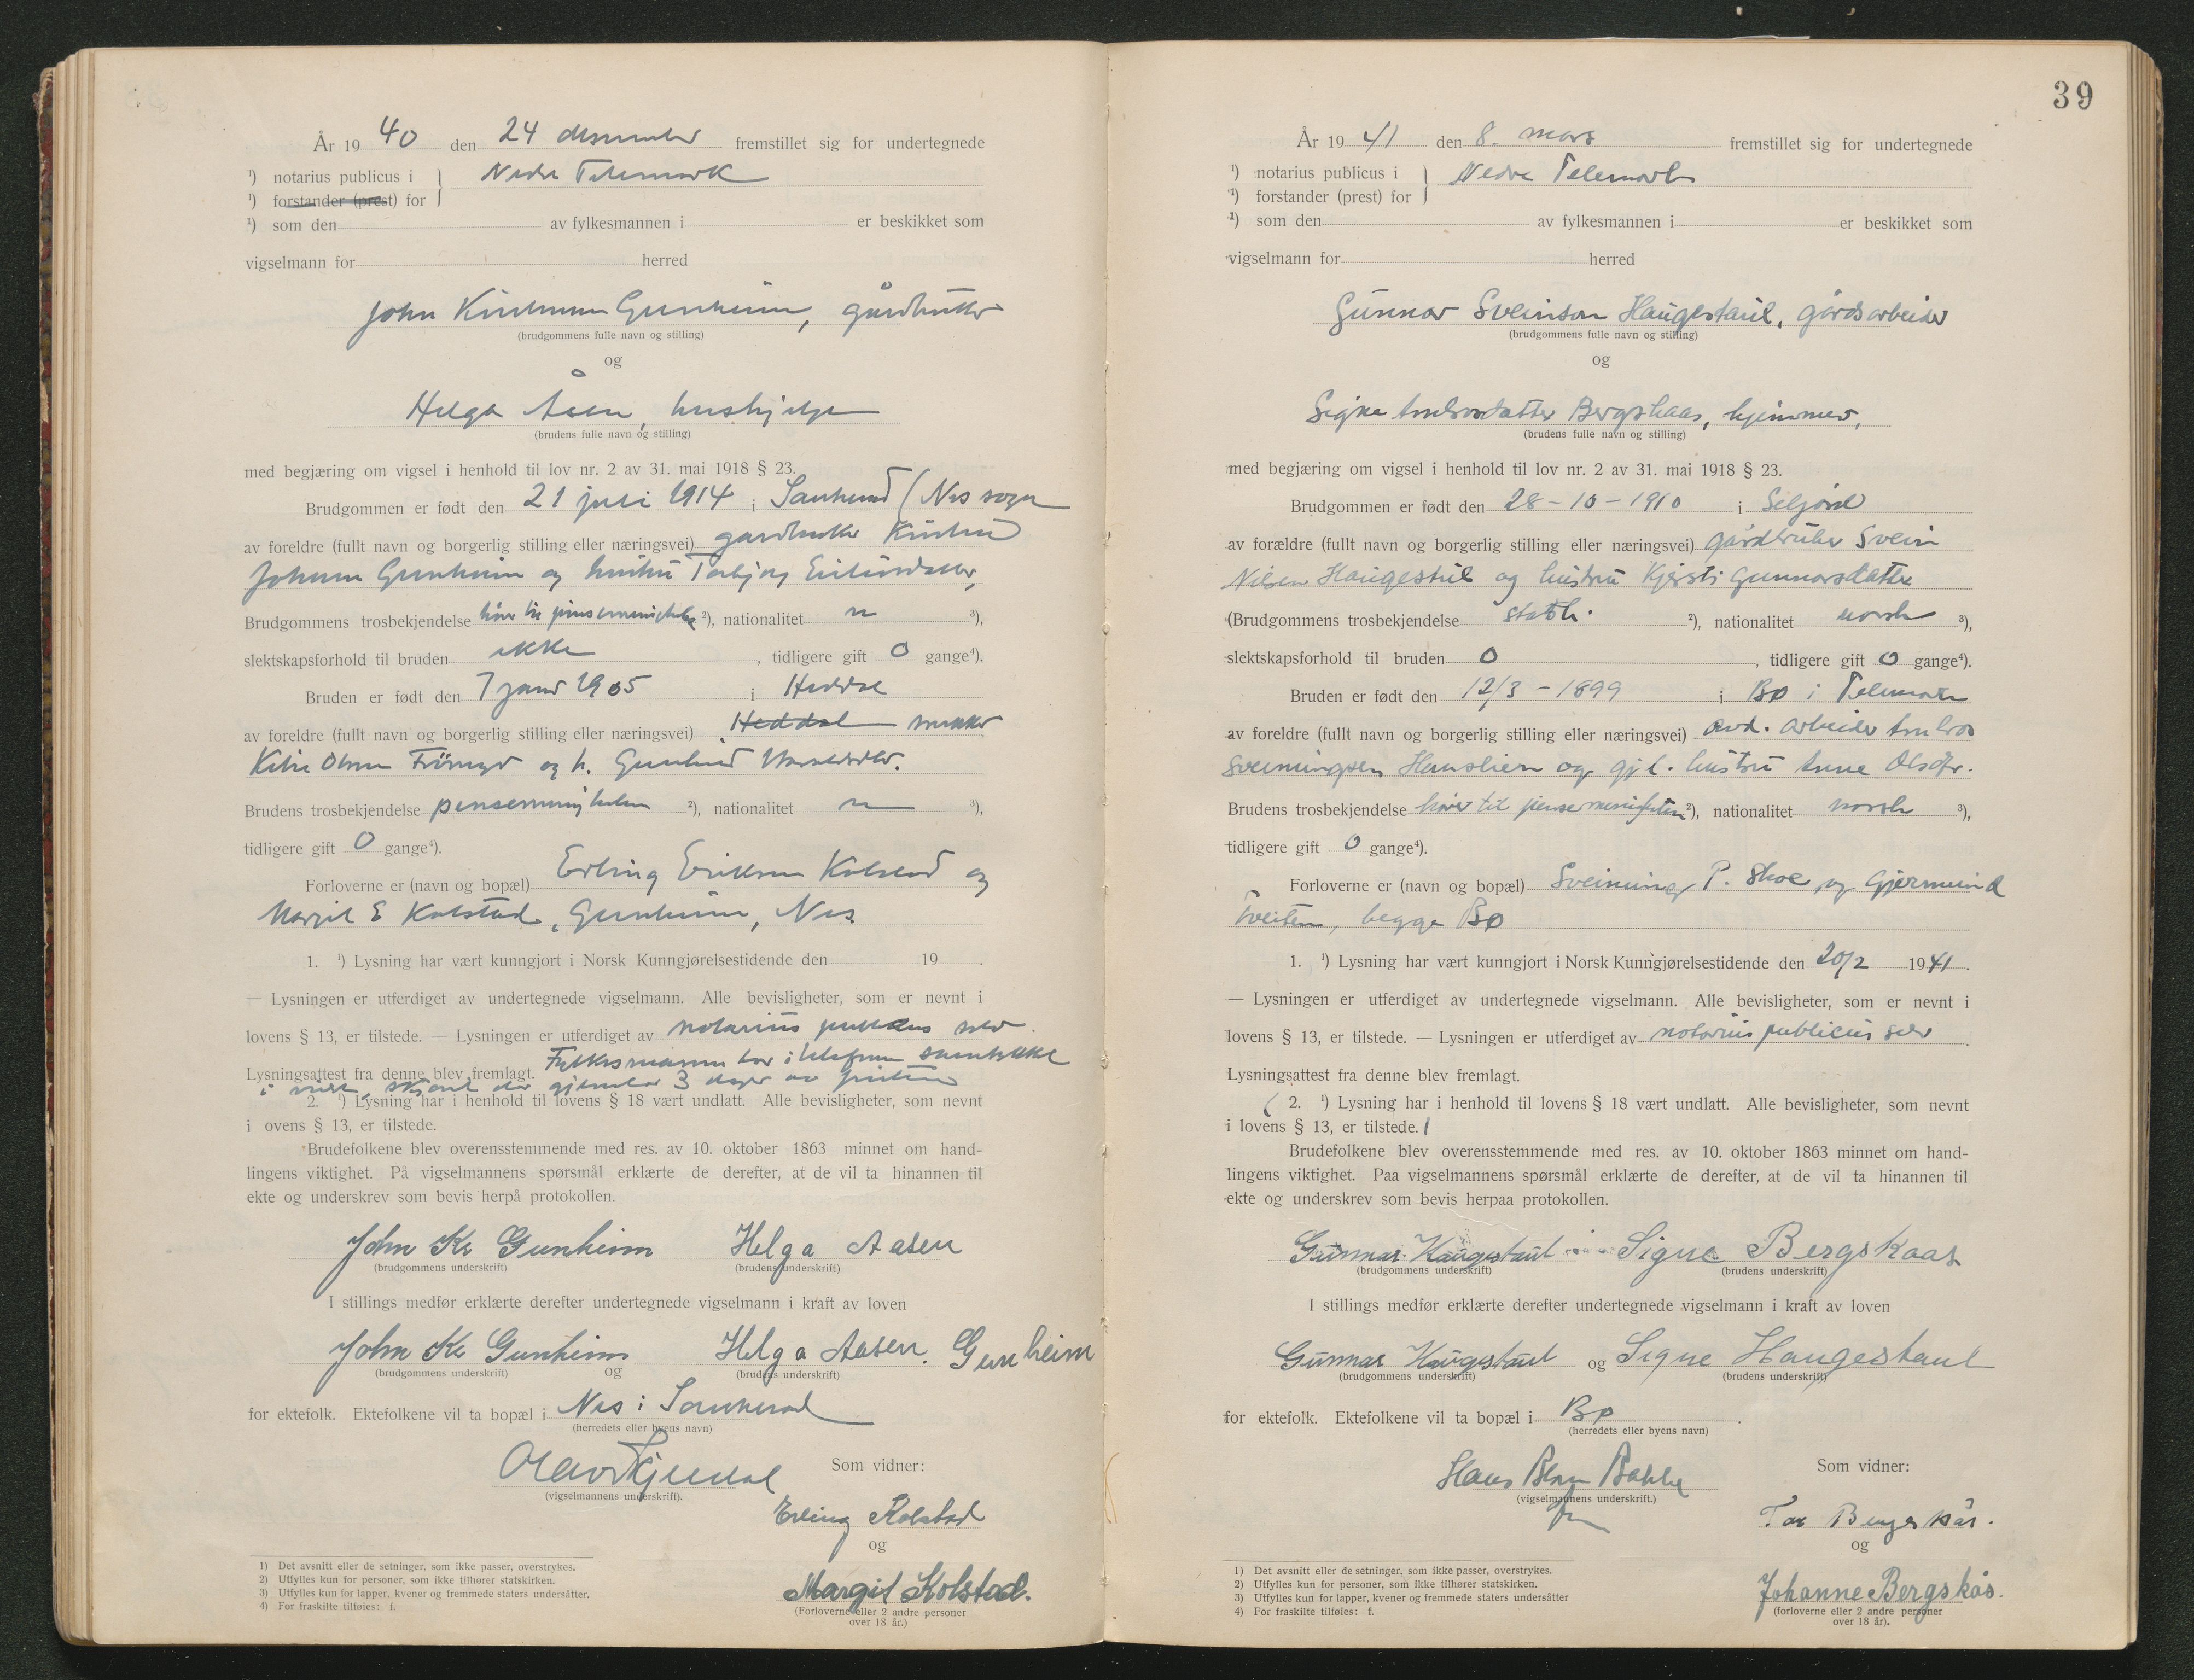 År 19 40 den 24 desember fremstillet sig for undertegnede
¹) notarius publicus i } Nedre Telemark
¹) forstander (prest) for
¹) som den av fylkesmannen i er beskikket som
vigselmann for herred
John Gunheim, gårdbruker
(brudgommens fulle navn og stilling)
og
Helga Åsen, hushjelp
(brudens fulle navn og stilling)
med begjæring om vigsel i henhold til lov nr. 2 av 31. mai 1918 § 23.
Brudgommen er født den 21 juli 1914 i Sauherad (Nes sogn
av foreldre (fullt navn og borgerlig stilling eller næringsvei) gardbruker
Gunheim og hustru Torbjørg
Brudgommens trosbekjendelse hører til pinsemenigheten ²), nationalitet n ³),
slektskapsforhold til bruden ikke, tidligere gift 0 gange⁴).
Bruden er født den 7 januar 1905 i Heddal
av foreldre (fullt navn og borgerlig stilling eller næringsvei) Heddal snekker
Olsen og h. Gunhild
Brudens trosbekjendelse pinsemenigheten ²), nationalitet n ³),
tidligere gift 0 gange⁴).
Forloverne er (navn og bopæl) Erling Eriksen Kolstad og
Margit E Kolstad, Gunheim, Nes.
1. ¹) Lysning har vært kunngjort i Norsk Kunngjørelsestidende den 19 .
— Lysningen er utferdiget av undertegnede vigselmann. Alle bevisligheter, som er nevnt i
lovens § 13, er tilstede. — Lysningen er utferdiget av notarius publicus selv.
Lysningsattest fra denne blev fremlagt. Fylkesmannen har i telefonen samtykket
i vielse, skjønt der gjenstår 3 dager av fristen
2. ¹) Lysning har i henhold til lovens § 18 vært undlatt. Alle bevisligheter, som nevnt
i ovens § 13, er tilstede.
Brudefolkene blev overensstemmende med res. av 10. oktober 1863 minnet om hand-
lingens viktighet. På vigselmannens spørsmål erklærte de derefter, at de vil ta hinannen til
ekte og underskrev som bevis herpå protokollen.
John Kr Gunheim Helga Aasen
(brudgommens underskrift) (brudens underskrift)
I stillings medfør erklærte derefter undertegnede vigselmann i kraft av loven
John Kr Gunheim Helga Aasen. Gunheim
(brudgommens underskrift) og (brudens underskrift)
for ektefolk. Ektefolkene vil ta bopæl i Nes i Sauherad
(herredets eller byens navn)
Olav
(vigselmannens underskrift).
Som vidner:
Erling Kolstad
og
Margit Kolstad.
(Forloverne eller 2 andre personer
over 18 år.)
1) Det avsnitt eller de setninger, som ikke passer, overstrykes.
2) Utfylles kun for personer, som ikke tilhører statskirken.
3) Utfylles kun for lapper, kvener og fremmede staters undersåtter.
4) For fraskilte tilføies: f.
39
År 19 41 den 8. mars fremstillet sig for undertegnede
¹) notarius publicus i } Nedre Telemark
¹) forstander (prest) for
¹) som den av fylkesmannen i er beskikket som
vigselmann for herred
Gunnar Sveinson Haugestaul, gårdsarbeider
(brudgommens fulle navn og stilling)
og
Signe Ambrosdatter Bergskaas, hjemmev,
(brudens fulle navn og stilling)
med begjæring om vigsel i henhold til lov nr. 2 av 31. mai 1918 § 23.
Brudgommen er født den 28-10-1910 i Seljord
av forældre (fullt navn og borgerlig stilling eller næringsvei) gårdbruker Svein
Nilsen Haugestul og hustru Kjersti Gunnarsdatter
(Brudgommens trosbekjendelse statsk. ²), nationalitet norsk ³),
slektskapsforhold til bruden 0, tidligere gift 0 gange⁴).
Bruden er født den 12/3 - 1899 i Bø i Telemark
av foreldre (fullt navn og borgerlig stilling eller næringsvei) avd. arbeider Ambros
Sveinungsen Hanslien og gjl. hustru Anne Olsdtr.
Brudens trosbekjendelse hører til pinsemenigheten ²), nationalitet norsk ³),
tidligere gift 0 gange⁴).
Forloverne er (navn og bopæl) Sveinung P. Skoe, og Gjermund
Tveiten, begge Bø
1. ¹) Lysning har vært kunngjort i Norsk Kunngjørelsestidende den 20/2 1941 .
— Lysningen er utferdiget av undertegnede vigselmann. Alle bevisligheter, som er nevnt i
lovens § 13, er tilstede. — Lysningen er utferdiget av notarius publicus selv .
Lysningsattest fra denne blev fremlagt.
( 2. ¹) Lysning har i henhold til lovens § 18 vært undlatt. Alle bevisligheter, som nevnt
i lovens § 13, er tilstede. )
Brudefolkene blev overensstemmende med res. av 10. oktober 1863 minnet om hand-
lingens viktighet. Paa vigselmannens spørsmål erklærte de derefter, at de vil ta hinannen til
ekte og underskrev som bevis herpaa protokollen.
Gunnar Haugestaul Signe Bergskaas
(brudgommens underskrift) (brudens underskrift)
I stillings medfør erklærte derefter undertegnede vigselmann i kraft av loven
Gunnar Haugstaul og Signe Haugestaul
(brudgommens underskrift) (brudens underskrift)
for ektefolk. Ektefolkene vil ta bopæl i Bø .
(herredets eller byens navn)
Hans Bakke
(vigselmannens underskrift.)
fm
Som vidner:
Tor Bergskås.
og
Johanne Bergskås.
(forloverne eller 2 andre personer
over 18 år).
1) Det avsnitt eller de setninger, som ikke passer, overstrykes.
2) Utfylles kun for personer, som ikke tilhører statskirken.
3) Utfylles kun for lapper, kvener og fremmede staters undersåtter
4) For fraskilte tilføies: f.